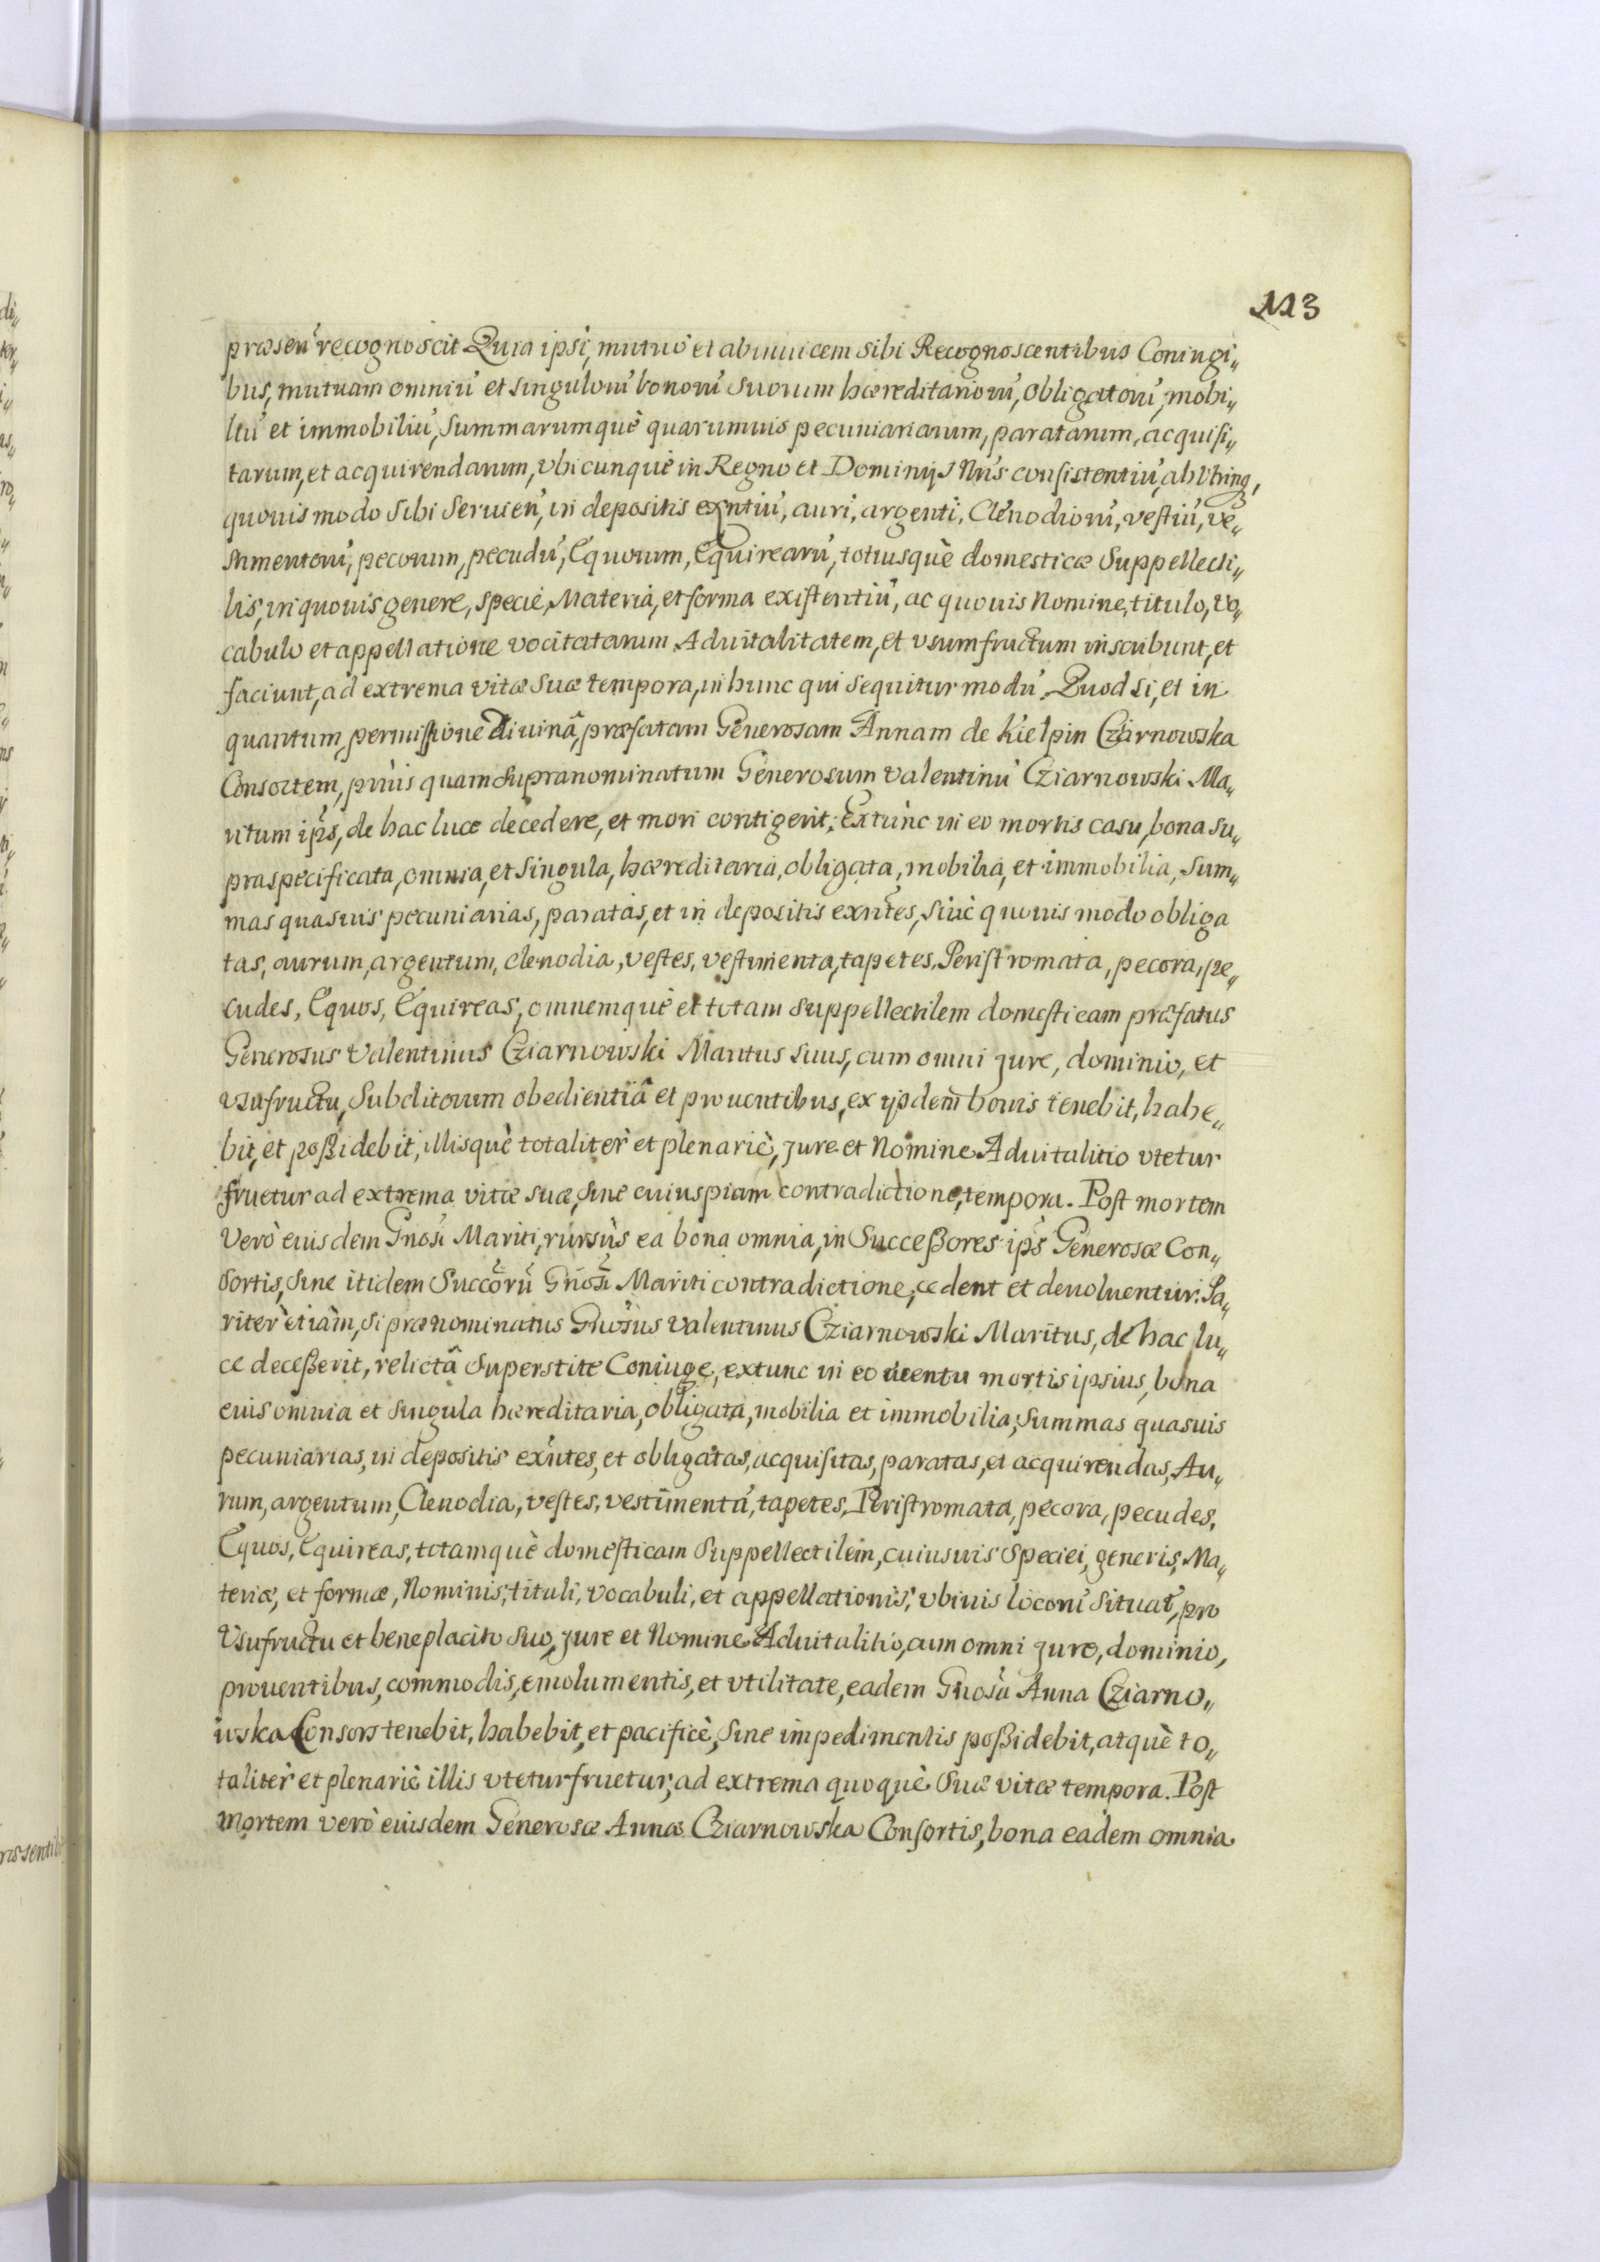 113
præsen' recognoscit Quia ipsi, mutuò et abinuicem sibi Recognoscentibus Coniugi„
bus, mutuam omniu' et singuloru' bonoru' suorum hæreditarioru', obligatoru', mobi„
liu' et immobiliu', summarumquè quarumuis pecuniariarum, paratarum, acquisi„
tarum, et acquirendarum, vbicunquè in Regno et Dominijs Nris consistentiu', ab Vtrinq,
quouis modo sibi seruien', in depositis exntiu', auri, argenti, Clenodioru', vestiu', ve„
stimentoru', pecorum, pecudu', Equorum, Equirearu', totiusquè domesticæ Suppellecti„
lis, in quouis genere, specie, Materia, et forma existentiu', ac quouis Nomine, titulo, vo„
cabulo et appellatione vocitatarum Aduitalitatem, et vsumfructum inscribunt, et
faciunt, ad extrema vitæ suæ tempora, in hunc qui sequitur modu'. Quod si, et in
quantum, permissione diuinâ, præfatam Generosam Annam de Kielpin Cziarnowska
Consortem, priùs quam supranominatum Generosum Valentinu' Cziarnowski Ma„
ritum ips', de hac luce decedere, et mori contigerit: Extunc in eo mortis casu, bona su„
praspecificata, omnia, et singula, hæreditaria, obligata, mobilia, et immobilia, sum„
mas quasuis pecuniarias, paratas, et in depositis exntes, siuè quouis modo obliga
tas, aurum, argentum, clenodia, vestes, vestimenta, tapetes, Peristromata, pecora, pe„
cudes, Equos, Equireas, omnemquè et totam suppellectilem domesticam præfatus
Generosus Valentinus Cziarnowski Maritus suus, cum omni jure, dominio, et
vsufructu, Subditorum obedientiâ et prouentibus, ex ijsdem bonis tenebit, habe„
bit, et poßidebit, illisquè totalitèr et plenariè, jure et Nomine Aduitalitio vtetur
fruetur ad extrema vitæ suæ, sine cuiuspiam contradictione, tempora. Post mortem
Verò eiusdem Gnosi Mariti, rursùs ea bona omnia, in Succeßores ips' Generosæ Con„
sortis, sine itidem Succoru' Gnosi Mariti contradictione, cedent et deuoluentur. Pa„
ritèr etiàm, si prænominatus Gnosus Valentinus Cziarnowski Maritus, de hac lu„
ce deceßerit, relictâ superstite Coniuge, extunc in eo euentu mortis ipsius, bona
eius omnia et singula hæreditaria, obligata, mobilia et immobilia, summas quasuis
pecuniarias, in depositis exntes, et obligatas, acquisitas, paratas, et acquirendas, Au„
rum, argentum, Clenodia, vestes, vestimenta, tapetes, Peristromata, pecora, pecudes,
Equos, Equireas, totamquè domesticam suppellectilem, cuiusuis speciei, generis, Ma„
teriæ, et formæ, Nominis, tituli, vocabuli, et appellationis, vbiuis locoru' situat', pro
Vsufructu et beneplacito suo, jure et Nomine Aduitalitio, cum omni jure, dominio,
prouentibus, commodis, emolumentis, et vtilitate, eadem Gnosa Anna Cziarno„
wska Consors tenebit, habebit, et pacificè, sine impedimentis poßidebit, atquè to„
talitèr et plenariè illis vtetur fruetur, ad extrema quoquè suæ vitæ tempora. Post
Mortem verò eiusdem Generosæ Annæ Cziarnowska Consortis, bona eadem omnia